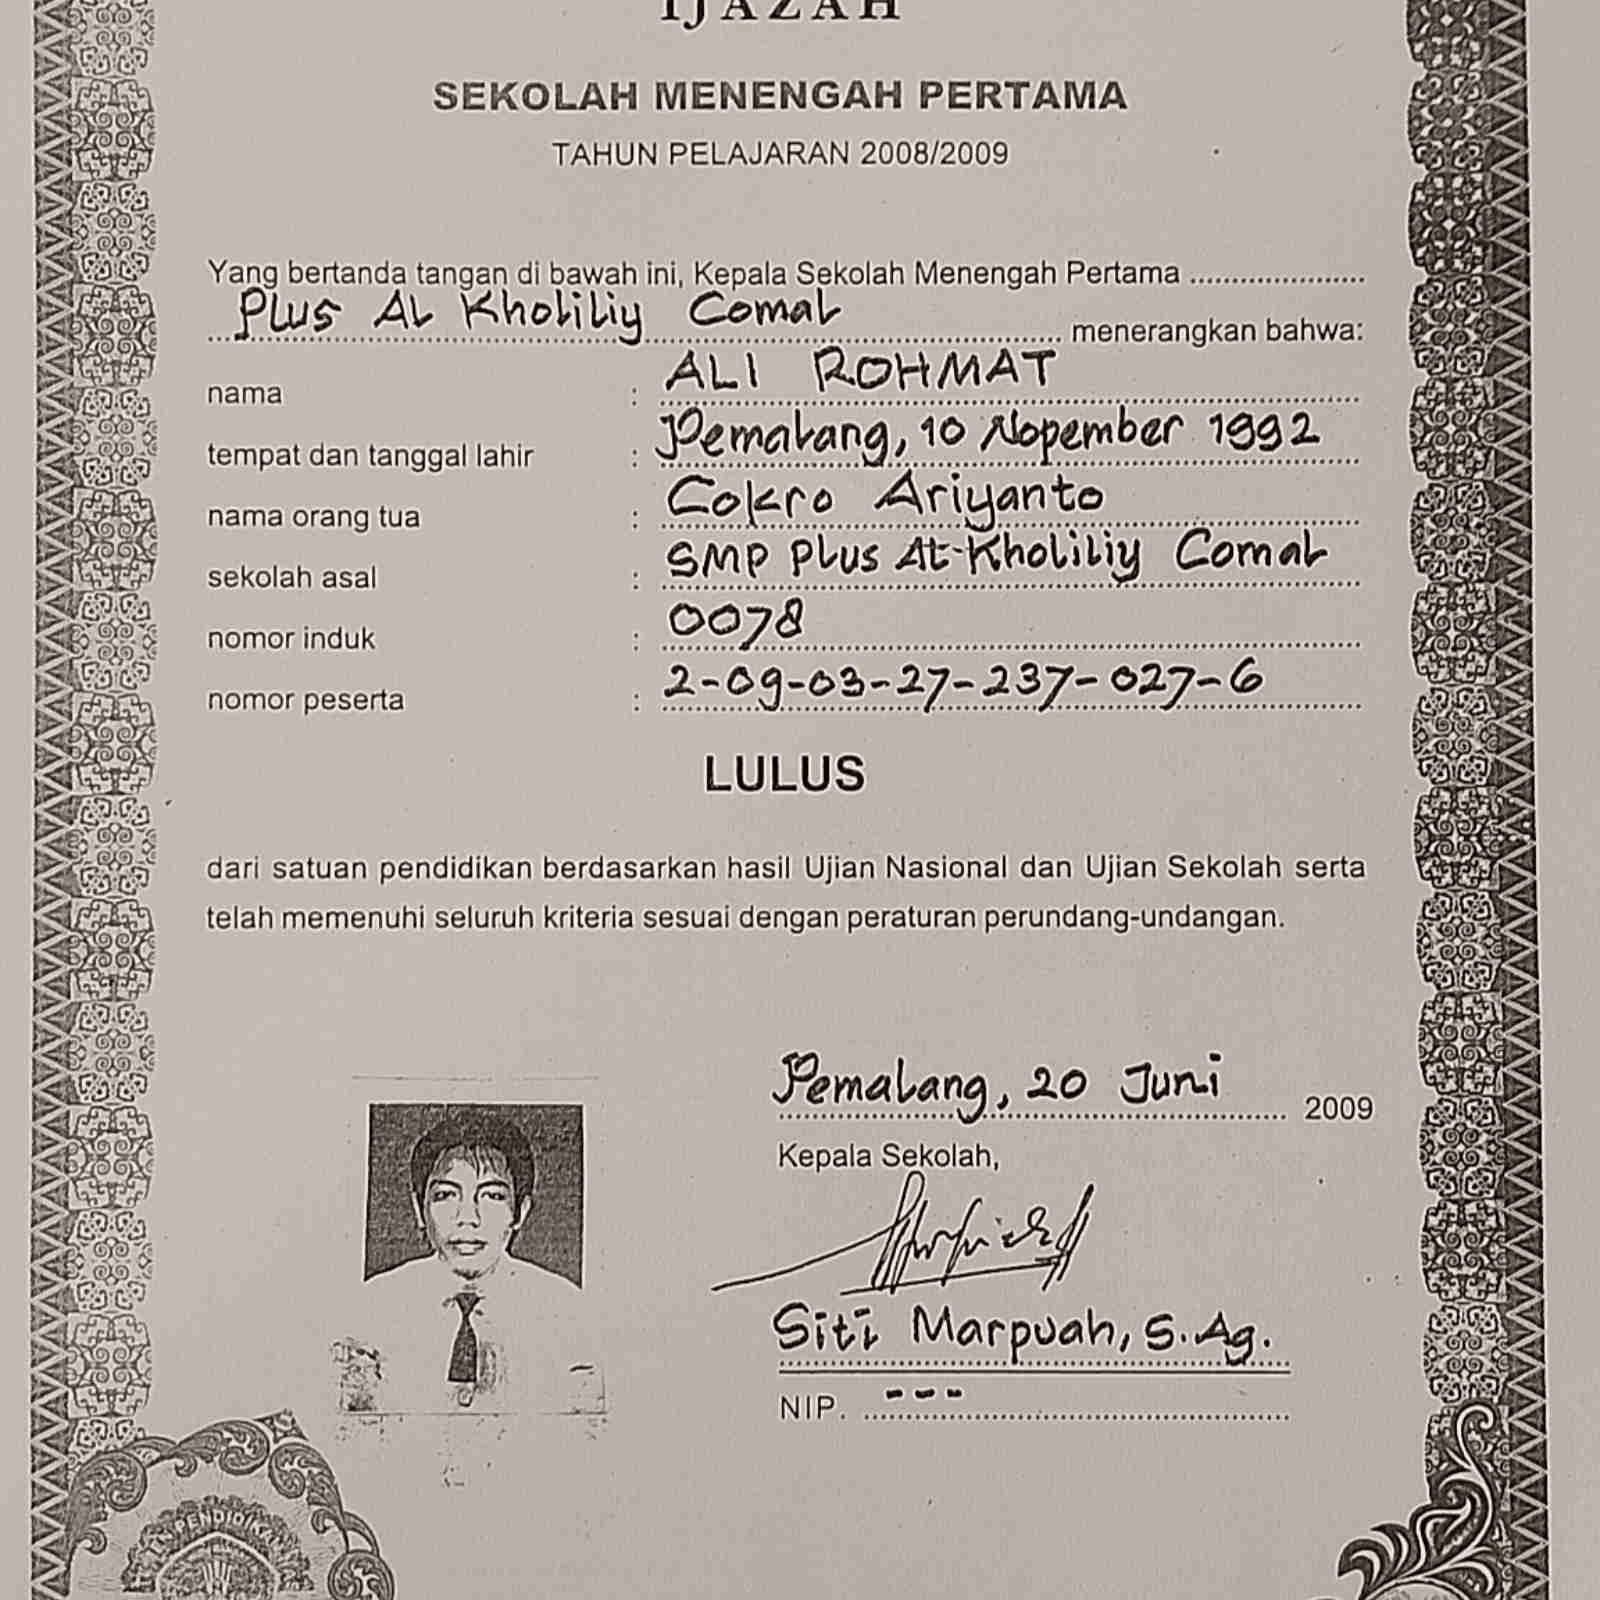 IJAZAH
SEKOLAH MENENGAH PERTAMA
TAHUN PELAJARAN 2008/2009
Yang bertanda tangan di bawah ini, Kepala Sekolah Menengah Pertama ....................
Plus Al Kholiliy Comal menerangkan bahwa:
nama : ALI ROHMAT
tempat dan tanggal lahir : Pemalang, 10 Nopember 1992
nama orang tua : Cokro Ariyanto
sekolah asal : SMP Plus At-Kholiliy Comal
nomor induk : 0078
nomor peserta : 2-09-03-27-237-027-6
LULUS
dari satuan pendidikan berdasarkan hasil Ujian Nasional dan Ujian Sekolah serta
telah memenuhi seluruh kriteria sesuai dengan peraturan perundang-undangan.
Pemalang, 20 Juni 2009
Kepala Sekolah,
Siti Marpuah, S.Ag.
NIP. ---